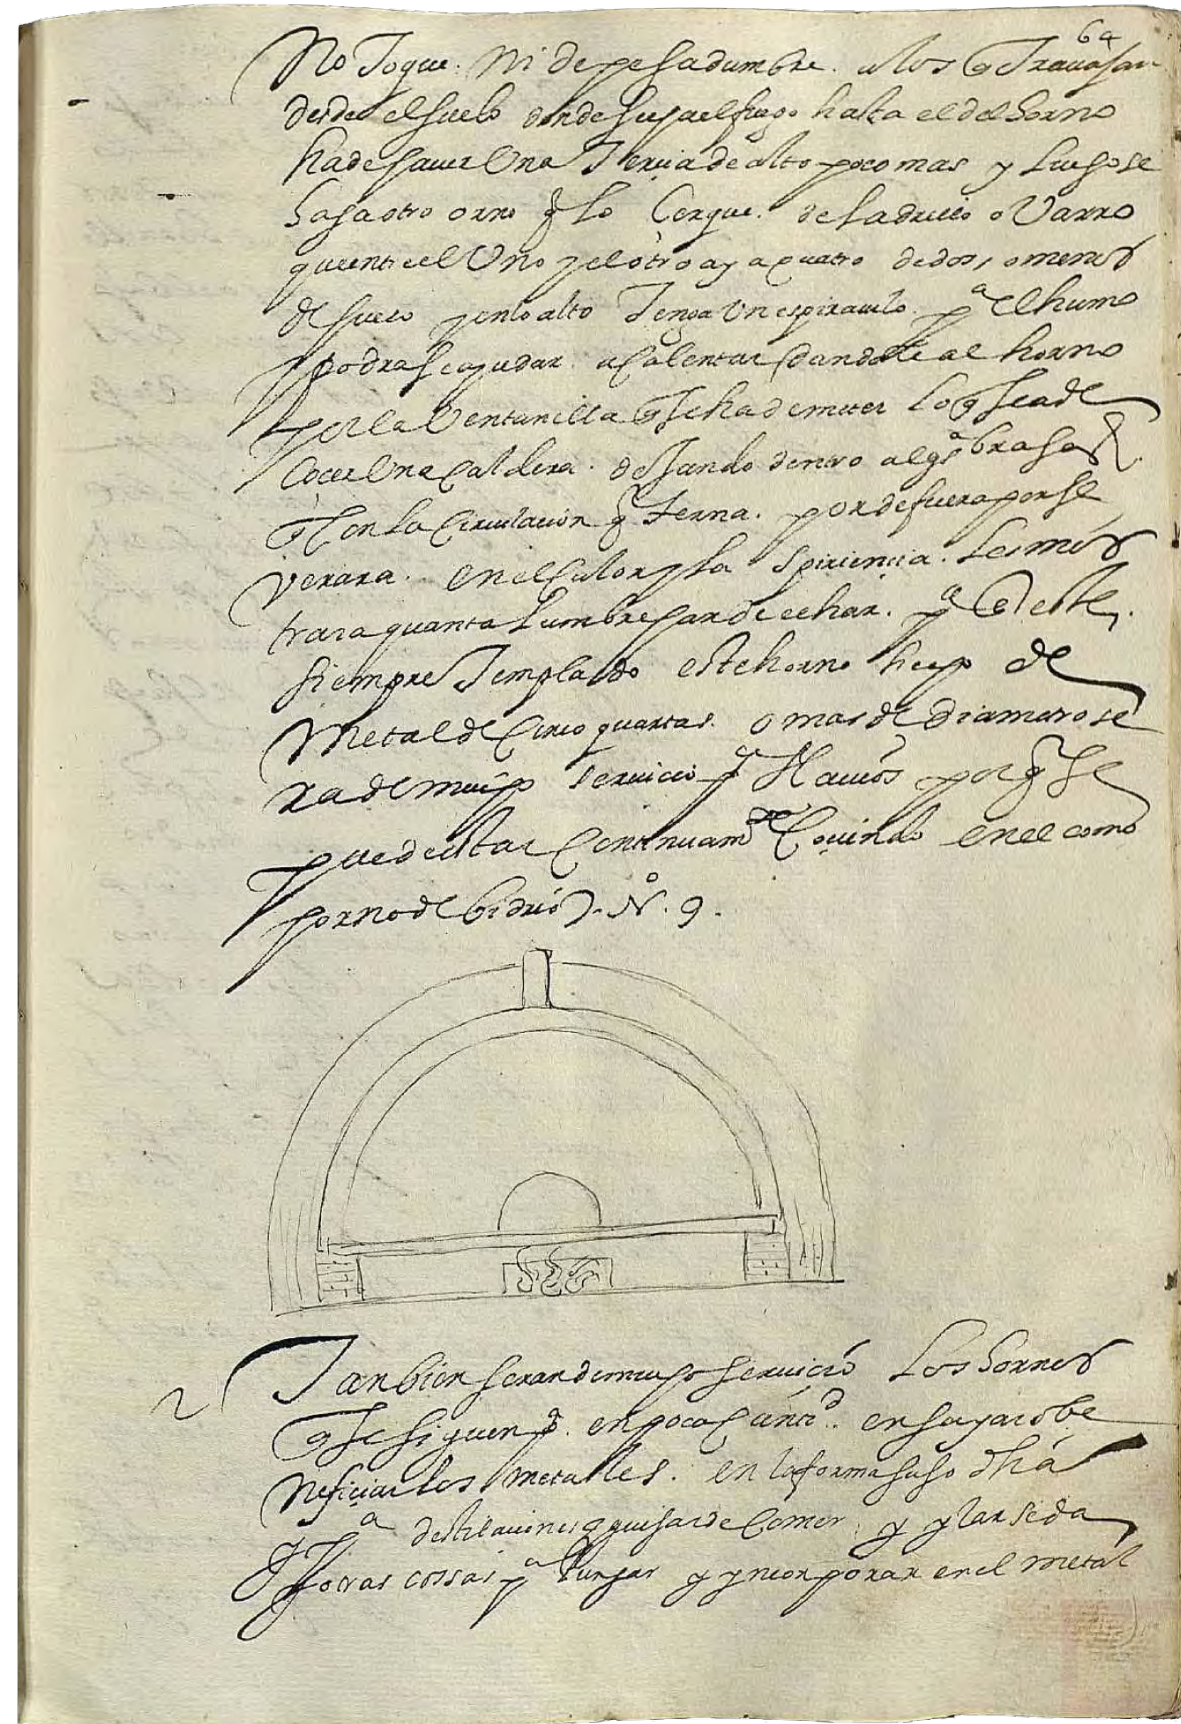 64
No Toque. Ni de pesadumbre. a los q Trauajan
desde el suelo donde se ha el fuego hasta el del horno
ha de hauer Una Tercia de alto poco mas y Luego se
haga otro orno q Lo Cerque. de Ladrillo o Varro
que entre el Uno y el otro aya quatro dedos, o menos
de hueco y en lo alto Tenga Un espiraculo pa el humo
podrase ayudar. a Calentar dandole al horno
por la Ventanilla q se ha de meter Lo q se a de
Cocer Una Caldera. dejando dentro algs brasas
q con la Circulacion q Terna. por de fuera perse
verara. en el Calor y la Spiriencia. Les mos
trara quanta Lumbre han de echar. pa q este
siempre Templado este horno hecho de
Metal de Cinco quartas. o mas de diametro se
ra de mucho seruicio pa Nauios por q se
puede estar Continuamte Coçiendo en el como
horno de bidrio). No. 9.
2 Tanbien seran de mucho seruicio Los hornos
q se siguen pa. en poca Cantid. ensayar o be
neficiar los metales. en la forma suso dha
y pa destilaciones q guisar de Comer y ylar seda
y otras cossas pa Purgar y yncorporar en el metal